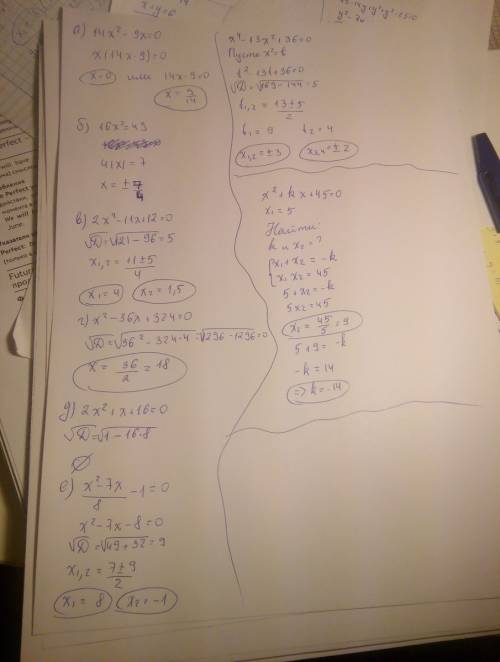 а) 14x² - 9x = 0
x(14x - 9) = 0
x = 0 или 14x - 9 = 0
x = 9/14
б) 16x² = 49
4|x| = 7
x = ± 7/4
в) 2x² - 11x + 12 = 0
√D = √121 - 96 = 5
x₁,₂ = +11 ± 5 / 4
x₁ = 4 x₂ = 1,5
г) x² - 36x + 324 = 0
√D = √36² - 324·4 = √1296 - 1296 = 0
x = 36/2 = 18
д) 2x² + x + 16 = 0
√D = √1 - 16·8
∅
е) x² - 7x / 8 - 1 = 0
x² - 7x - 8 = 0
√D = √49 + 32 = 9
x₁,₂ = 7 ± 9 / 2
x₁ = 8 x₂ = -1
x⁴ - 13x² + 36 = 0
Пусть x² = t
t² - 13t + 36 = 0
√D = √169 - 144 = 5
t₁,₂ = 13 ± 5 / 2
t₁ = 9 t₂ = 4
x₁,₂ = ±3 x₃,₄ = ±2
x² + kx + 45 = 0
x₁ = 5
Найти:
k и x₂ = ?
{ x₁ + x₂ = -k
x₁ x₂ = 45
5 + x₂ = -k
5x₂ = 45
x₂ = 45/5 = 9
5 + 9 = -k
-k = 14
=> k = -14